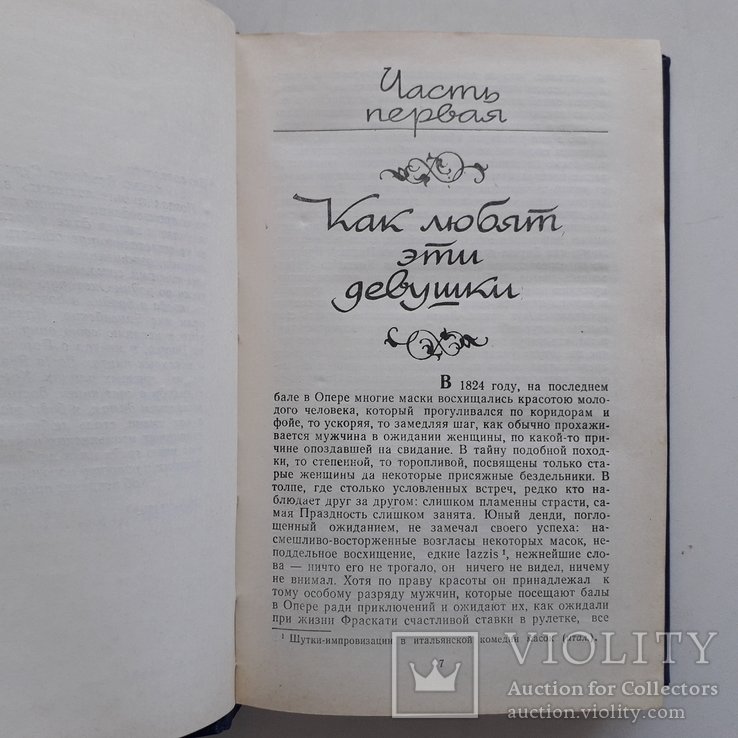 Часть
первая
Как любят
эти
девушки
В 1824 году, на последнем
бале в Опере многие маски восхищались красотою моло-
дого человека, который прогуливался по коридорам и
фойе, то ускоряя, то замедляя шаг, как обычно прохажи-
вается мужчина в ожидании женщины, по какой-то при-
чине опоздавшей на свидание. В тайну подобной поход-
ки, то степенной, то торопливой, посвящены только ста-
рые женщины да некоторые присяжные бездельники. В
толпе, где столько условленных встреч, редко кто на-
блюдает друг за другом: слишком пламенны страсти, са-
мая Праздность слишком занята. Юный денди, погло-
щенный ожиданием, не замечал своего успеха: на-
смешливо-восторженные возгласы некоторых масок, не-
поддельное восхищение, едкие lazzis ¹, нежнейшие сло-
ва — ничто его не трогало, он ничего не видел, ничему
не внимал. Хотя по праву красоты он принадлежал к
тому особому разряду мужчин, которые посещают балы
в Опере ради приключений и ожидают их, как ожидали
при жизни Фраскати счастливой ставки в рулетке, все
¹ Шутки-импровизации в итальянской комедии масок (итал.).
7
VIOLITY
Auction for Collectors
auction.violity.com